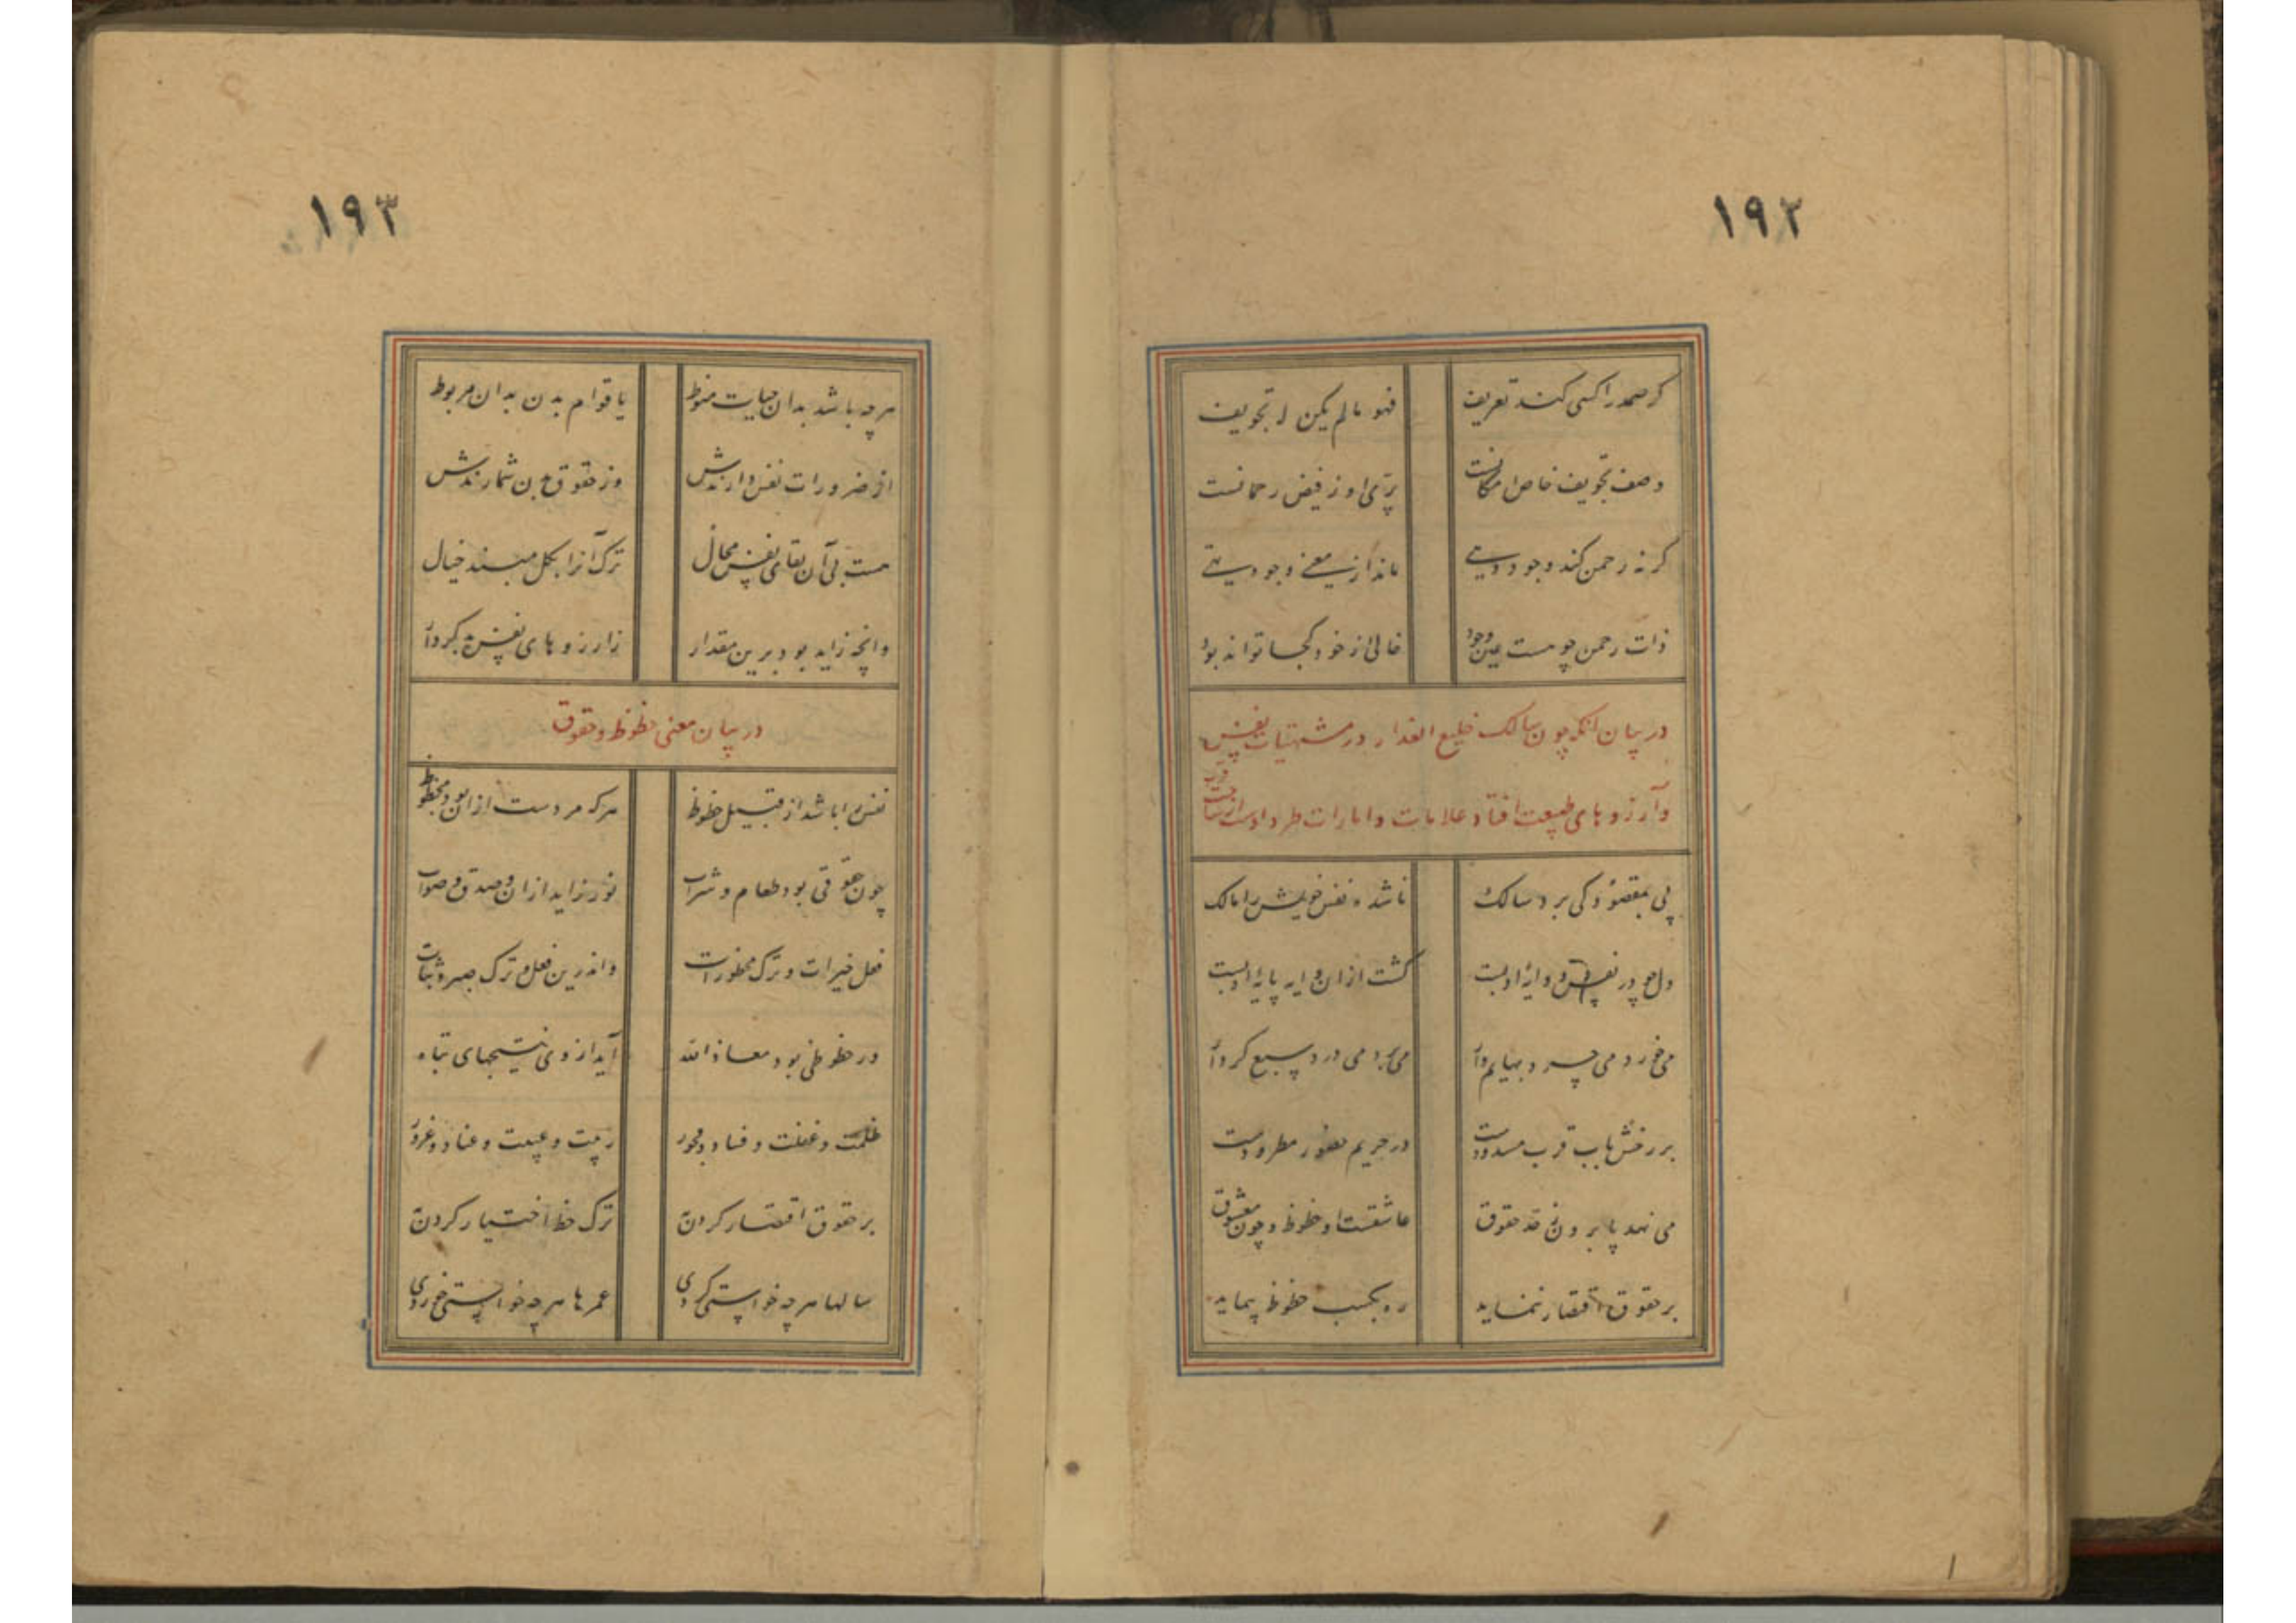 ١٩٢
گر صمد را کسی کند تعریف
فهو ما لم یکن له تجویف
وصف تجویف خاص امکانست
پری او ز فیض رحمانست
گر نه رحمن کند وجود دهی
ماند از معنی وجود تهی
ذات رحمن چو هست عین وجود
خالی از خود کجا تواند بود
در بیان آنکه چون سالک خلیع العذار در مشتهیات نفس
و آرزوهای طبیعت افتاد علامات و امارات طرد اوست از ساحت قرب
پی بمقصود کی برد سالک
ناشده نفس خویش را مالک
دل چو در نفس و وایهٔ او بست
گشت از ان وایه پایهٔ او پست
می خورد می چرد بهایم وار
می برد می درد سبع کردار
بر رخش باب قرب مسدودست
در حریم حضور مطرودست
می نهد پا برون ز حد حقوق
عاشقست او حظوظ چون معشوق
بر حقوق اقتصار ننماید
ره بکسب حظوظ پیماید
١٩٣
هر چه باشد بدان حیات منوط
یا قوام بدن بدان مربوط
از ضرورات نفس دارندش
وز حقوق بدن شمارندش
هست بی آن بقای نفس محال
ترک آنرا بکل مبند خیال
وانچه زاید بود برین مقدار
ز آرزوهای نفس بد کردار
در بیان معنی حظوظ و حقوق
نفس را باشد از قبیل حظوظ
هر که مردست از ان بود محظوظ
چون حقوقی بود طعام و شراب
نور زاید از ان و صدق و صواب
فعل خیرات و ترک محظورات
واندرین فعل و ترک صبر و ثبات
ور حظوظی بود معاذ الله
آید از وی نتیجهای تباه
ظلمت و غفلت و فساد و فجور
ریبت و غیبت و عناد و غرور
بر حقوق اقتصار کردن
ترک حظ اختیار کردن
سالها هر چه خواستی کردی
عمرها هر چه خواستی خوردی